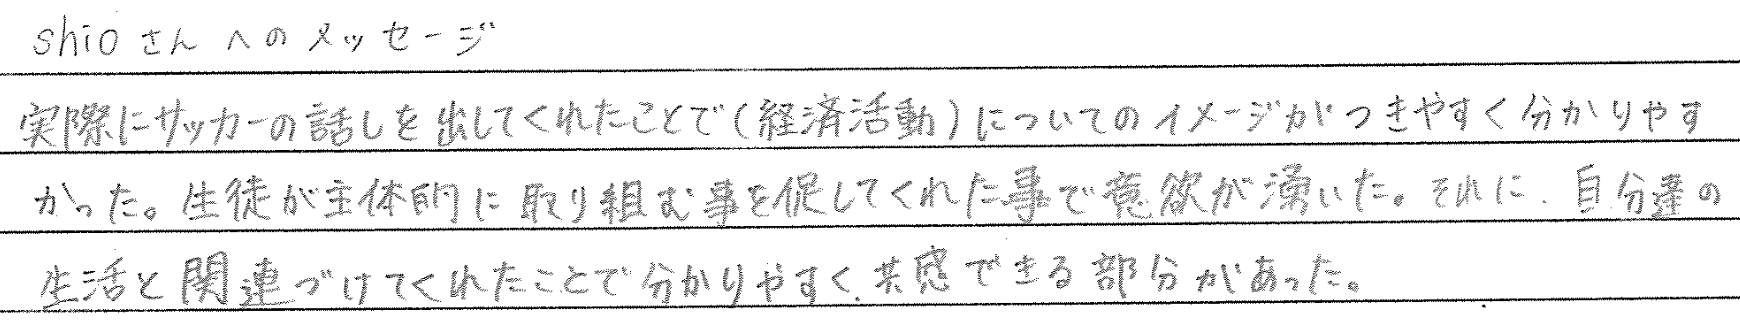 shioさんへのメッセージ
実際にサッカーの話しを出してくれたことで(経済活動)についてのイメージがつきやすく分かりやす
かった。生徒が主体的に取り組む事を促してくれた事で意欲が湧いた。それに、自分達の
生活と関連づけてくれたことで分かりやすく、共感できる部分があった。